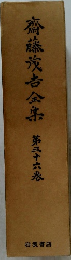 齋藤茂吉全集
第三十六卷
岩波書店